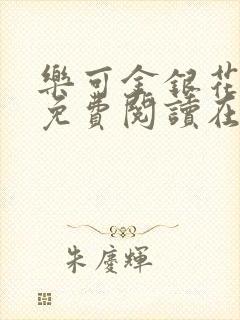 樂可金銀花
免費閱讀在
朱慶輝